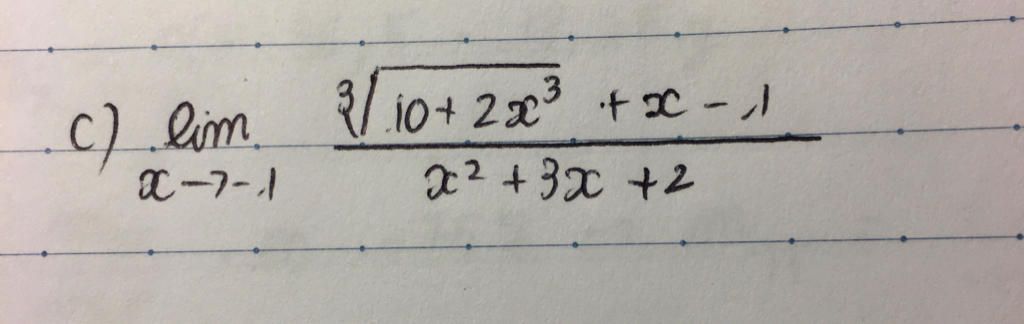 c) lim x→-1 ∛(10+2x³) + x - 1
x² + 3x + 2